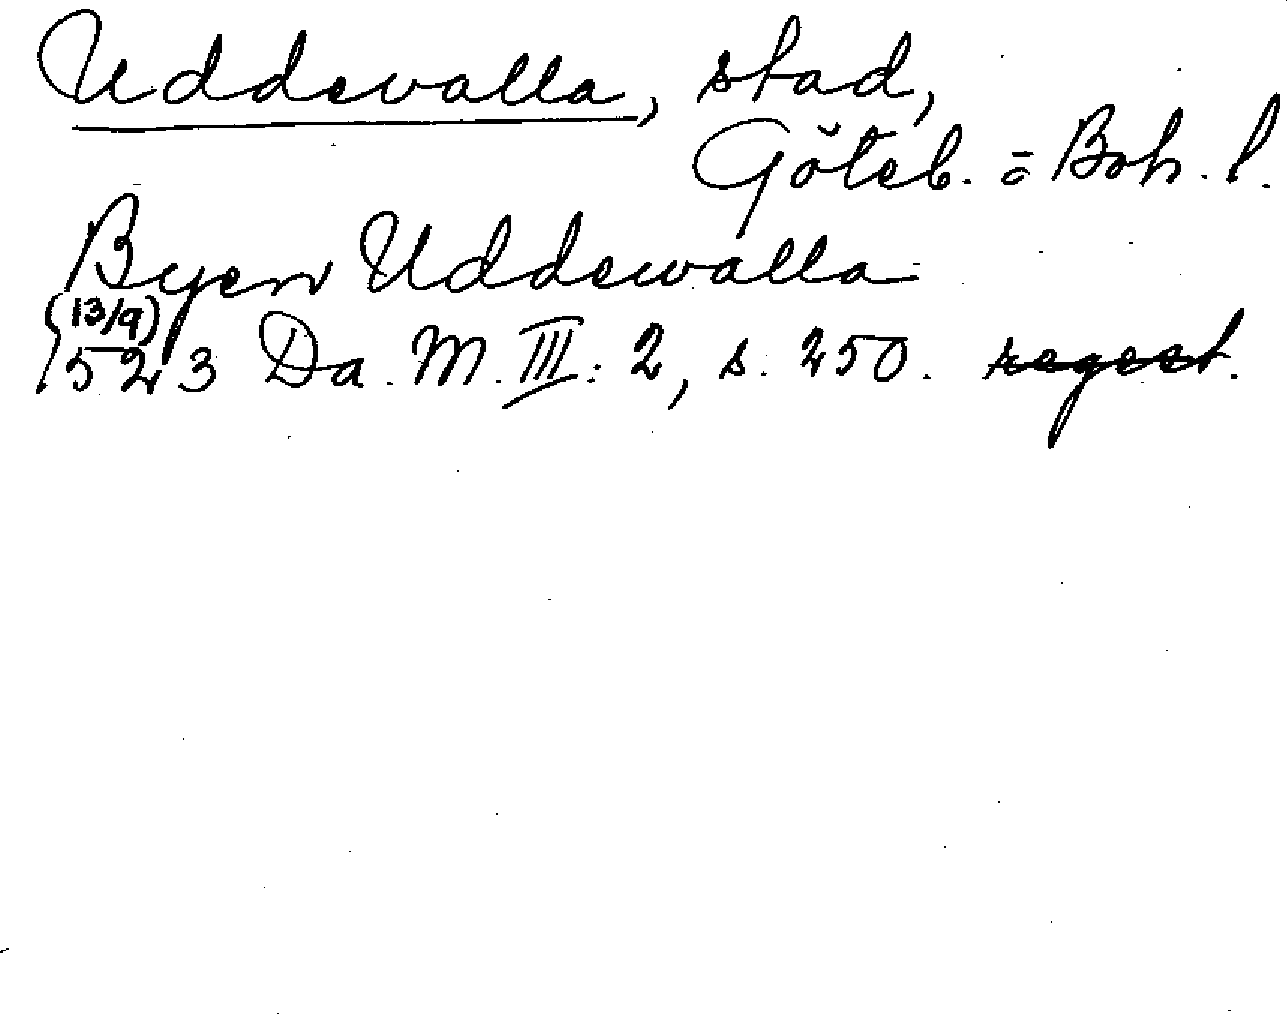 Uddevalla, stad,
Göteb. o Boh. l.
Byen Uddewalla
(13/9)
1523 Da. M. III: 2, s. 250. regest.